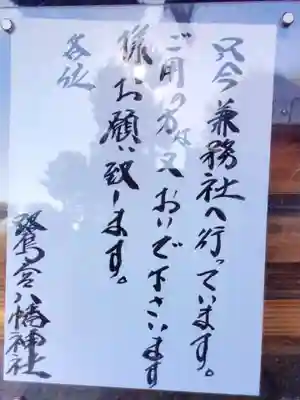 只今兼務社へ行っています。
ご用の方は又おいで下さいます
様、お願い致します。
各位
鷺宮八幡神社